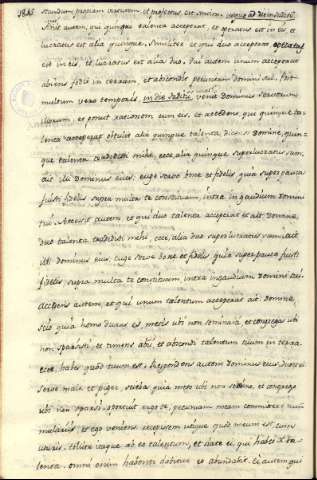 1845
secundum propriam virtutem et profectus est, statim
Abiit autem, qui quinque talenta acceperat et operatus est in eis, et
lucratus est alia quinque, similiter et qui duo acceperat operatus
est in eis, et lucratus est alia duo, qui autem unum acceperat
abiens fodit in terram, et abscondit pecuniam domini sui, post
multum vero temporis venit dominus servorum
illorum, et posuit rationem cum eis, et accedens, qui quinque ta
lenta acceperat obtulit alia quinque talenta dicens domine, quin
que talenta tradidisti mihi, ecce alia quinque superlucratus sum,
ait illi dominus eius, euge serve bone et fidelis quia super pauca
fuisti fidelis supra multa te constituam, intra in gaudium domini
tui. Accessit autem et qui duo talenta acceperat et ait domine
duo talenta tradidisti mihi, ecce, alia duo superlucratus sum, ait
illi dominus eius, euge serve bone et fidelis quia super pauca fuisti
fidelis supra multa te constituam, intra in gaudium domini tui.
Accedens autem, et qui unum talentum acceperat ait domine
scio quia homo durus es, metis ubi non seminasti et congregas ubi
non sparsisti, et timens abii, et abscondi talentum tuum in terra
ecce, habes quod tuum est, Respondens autem dominus eius, dixit ei
serve male et piger, sciebas quia meto ubi non semino, et congrego
ubi non sparsi, oportuit ergo te, pecuniam meam committere num
mulariis, et ego veniens recepissem utique quod meum est cum
usuris. tollite itaque ab eo talentum, et date ei, qui habet X ta
lenta, omni enim habenti dabitur et abundabit. Ei autem qui